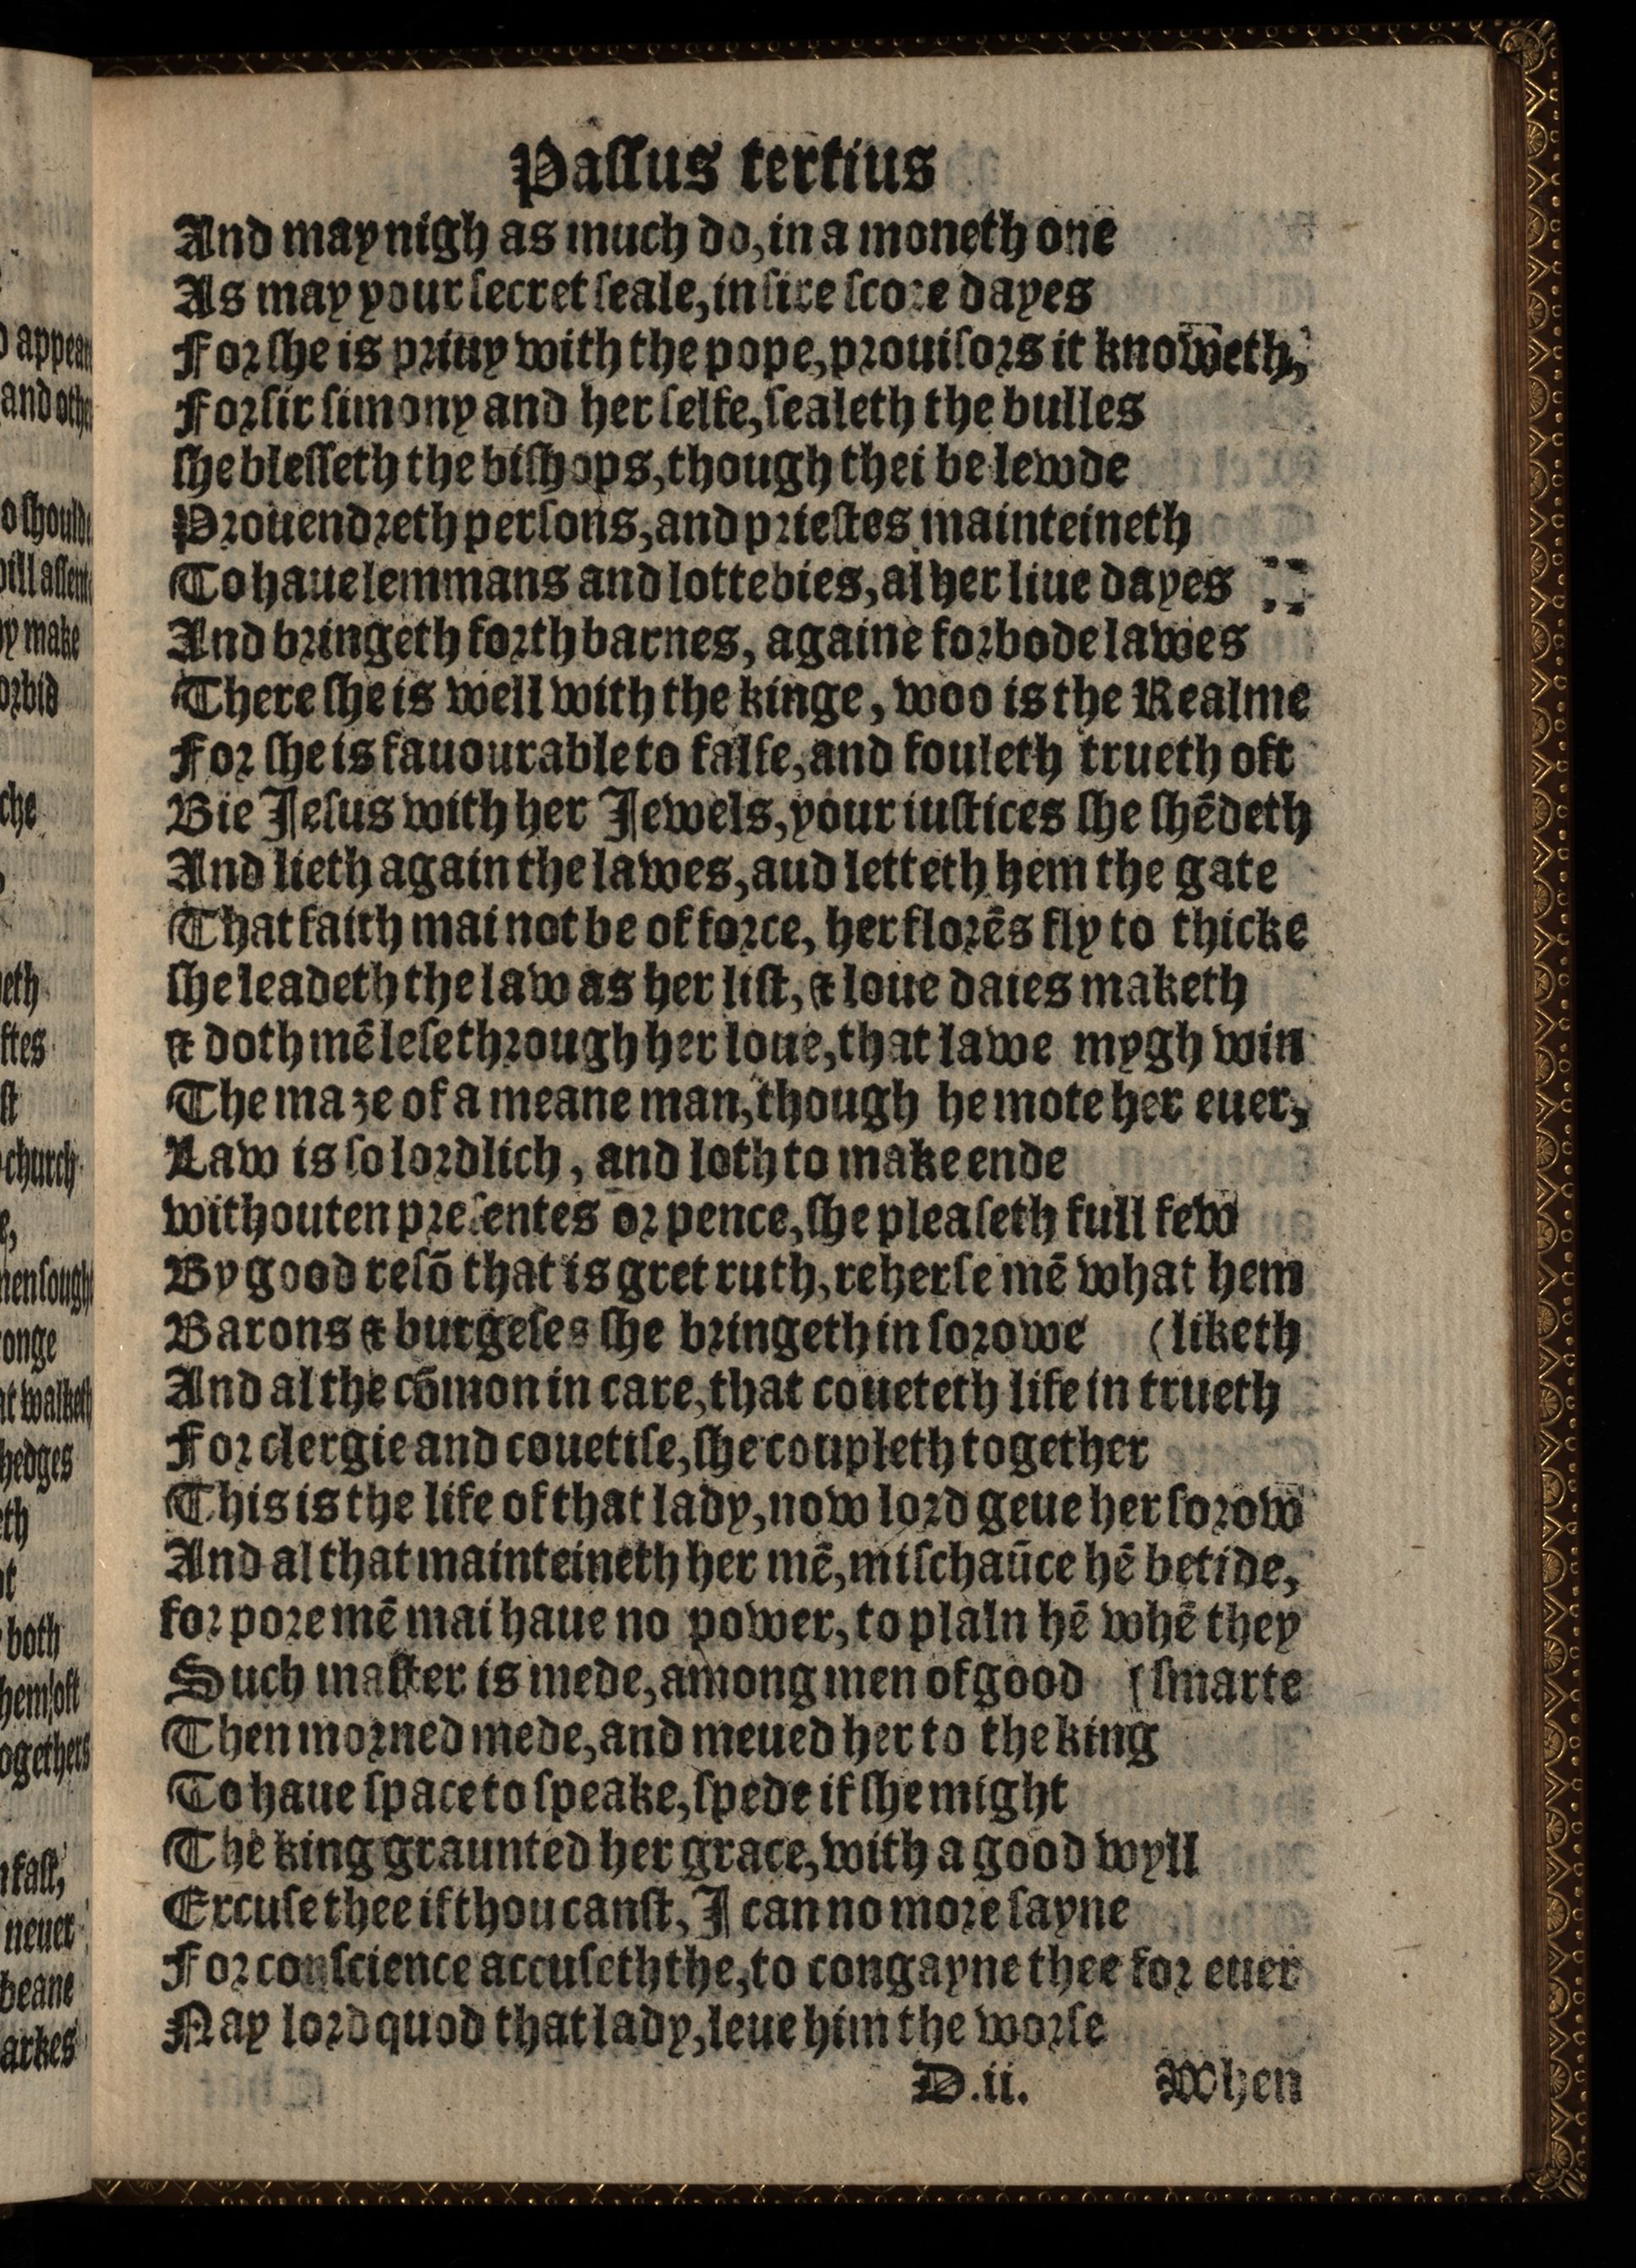 Passus tertius
And may nigh as much do, in a moneth one
As may your secret seale, in sixe score dayes
For she is priuy with the pope, prouisors it knoweth,
For sir simony and her selfe, sealeth the bulles
she blesseth the bishops, though thei be lewde
Prouendreth persons, and priestes mainteineth
To haue lemmans and lottebies, al her liue dayes
And bringeth forth barnes, againe forbode lawes
There she is well with the kinge, woo is the Realme
For she is fauourable to false, and fouleth trueth oft
Bie Jesus with her Jewels, your iustices she shēdeth
And lieth again the lawes, aud letteth hem the gate
That faith mai not be of force, her florēs fly to thicke
she leadeth the law as her list, & loue daies maketh
& doth mē lese through her loue, that lawe mygh win
The maze of a meane man, though he mote her euer,
Law is so lordlich, and loth to make ende
withouten presentes or pence, she pleaseth full few
By good resō that is gret ruth, reherse mē what hem
Barons & burgeses she bringeth in sorowe (liketh
And al the cōmon in care, that coueteth life in trueth
For clergie and couetise, she coupleth together
This is the life of that lady, now lord geue her sorow
And al that mainteineth her mē, mischaūce hē betide,
for pore mē mai haue no power, to plaln hē whē they
Such master is mede, among men of good (smarte
Then morned mede, and meued her to the king
To haue space to speake, spede if she might
The king graunted her grace, with a good wyll
Excuse thee if thou canst, I can no more sayne
For conscience accuseth the, to congayne thee for euer
Nay lord quod that lady, leue him the worse
D.ii. When